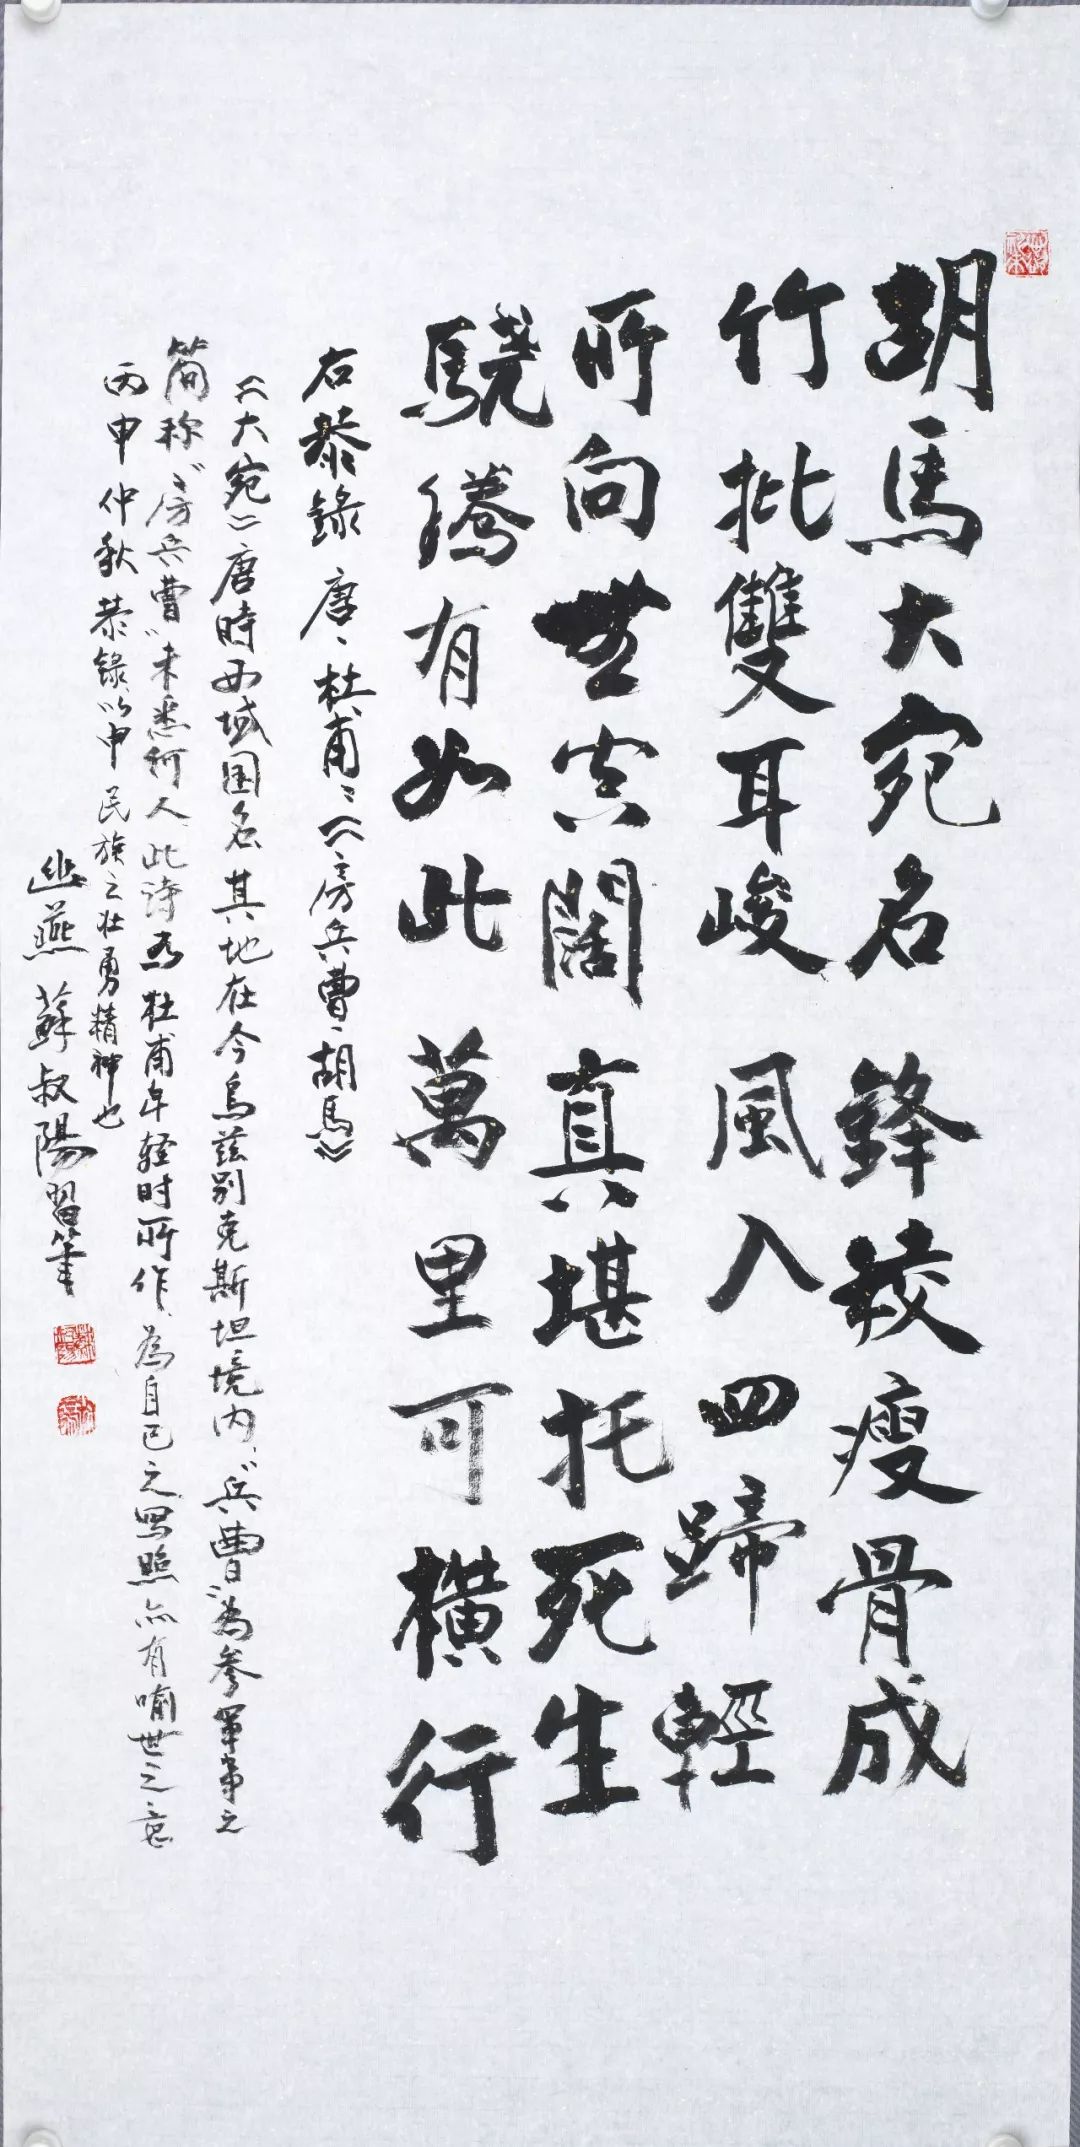 胡馬大宛名鋒稜瘦骨成
竹批雙耳峻風入四蹄輕
所向無空闊真堪托死生
驍騰有如此萬里可橫行
右恭錄唐、杜甫:《房兵曹胡馬》
《大宛》唐時西域国名其地在今烏兹別克斯坦境内,“兵曹”為參軍事之
簡称,“房兵曹”未悉何人,此诗为杜甫年轻时所作,為自己之寫照亦有喻世之意
丙申仲秋恭錄以申民族之壯勇精神也
幽燕蘇叔陽習筆